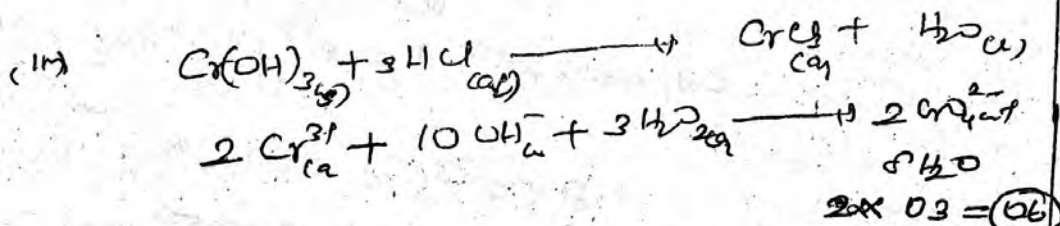 (iii) Cr(OH)₃(s) + 3HCl(aq) → CrCl₃(aq) + H₂O(l)
2Cr³⁺(aq) + 10OH⁻(aq) + 3H₂O₂(aq) → 2CrO₄²⁻(aq)
8H₂O
03 = 06